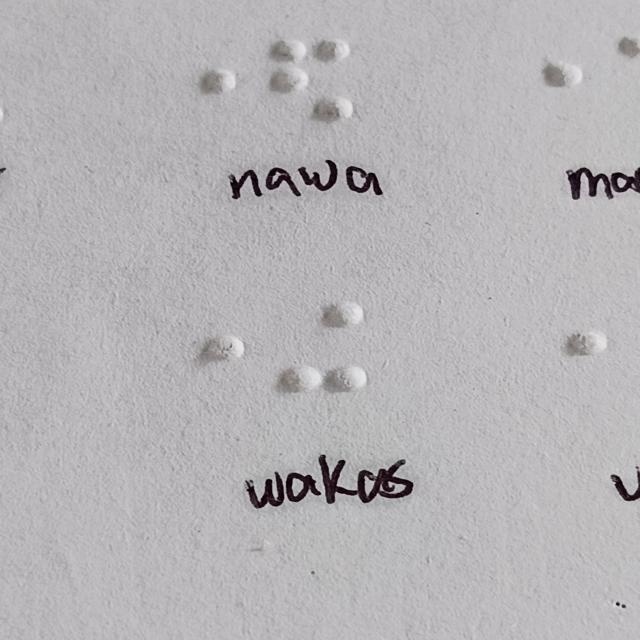 ⠐⠫
nawa
⠐⠬
wakas